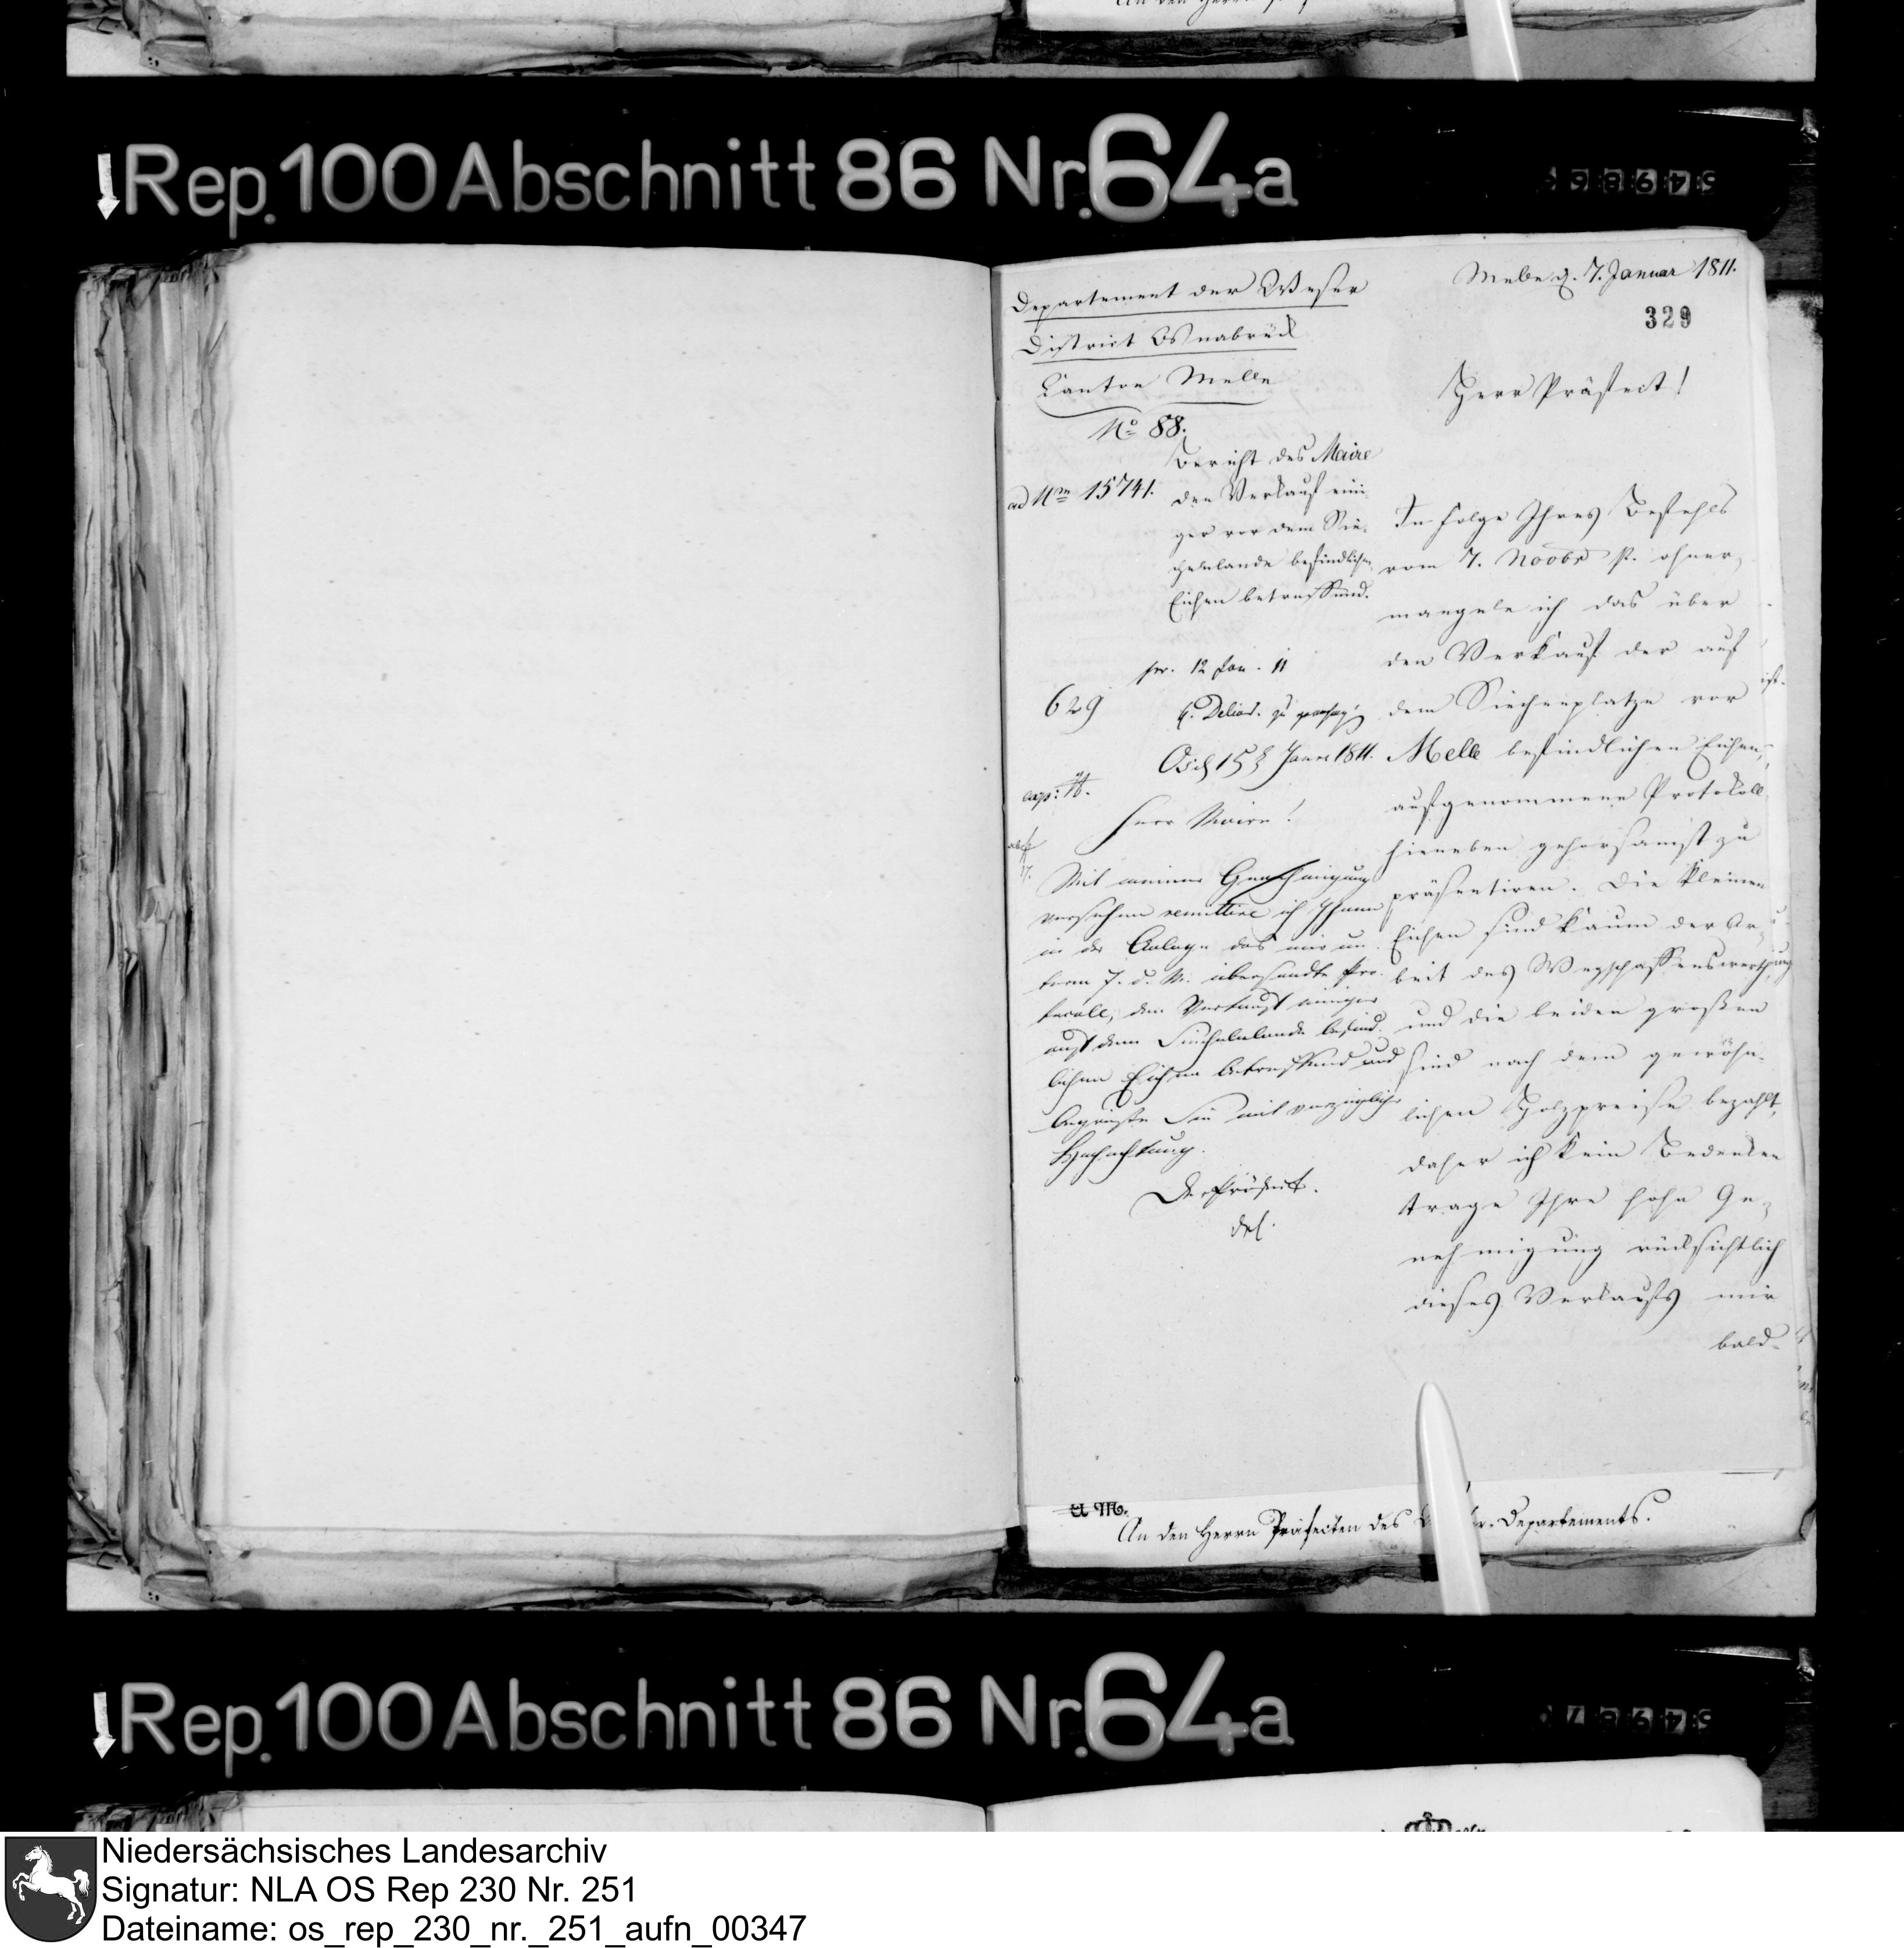 An den Herrn P
Rep. 100 Abschnitt 86 Nr. 64a
54986
Departement der Weser
District Osnabrück
Canton Melle
No 88.
Melle d. 7. Januar 1811.
329
Herr Präfect!
Bericht des Maire
ad Num 15741.
den Verkauf eini-
ger vor dem Sie-
chenlande befindlichen
Eichen betreffend.
pr. 12 Jan. 11
629
Os. d. 15t Janr 1811.
exp: 16.
Herr Maire!
Mit meiner Genehmigung
versehen remittire ich Ihnen
in der Anlage das mir un-
term 7. d. M. übersandte Pro-
tocoll, den Verkauf einiger
auf dem Siechenlande befind-
lichen Eichen betreffend und
begrüße Sie mit vorzüglicher
Hochachtung.
Der Präfect.
In Folge Ihres Befehls
vom 7. Novbr p. ohner-
mangele ich das über
den Verkauf der auf
dem Siechenplatze vor
Melle befindlichen Eichen,
aufgenommene Protokoll
hieneben gehorsamst zu
präsentiren. Die kleinen
Eichen sind kaum der Ar-
beit des Wegschaffens werth,
und die beiden großen
sind nach dem gewöhn-
lichen Holzpreise bezahlt,
daher ich kein Bedenken
trage Ihre hohe Ge-
nehmigung rücksichtlich
dieses Verkaufs mir
bald-
A M.
An den Herrn Präfecten des Departements.
Rep. 100 Abschnitt 86 Nr. 64a
54987
Niedersächsisches Landesarchiv
Signatur: NLA OS Rep 230 Nr. 251
Dateiname: os_rep_230_nr._251_aufn_00347